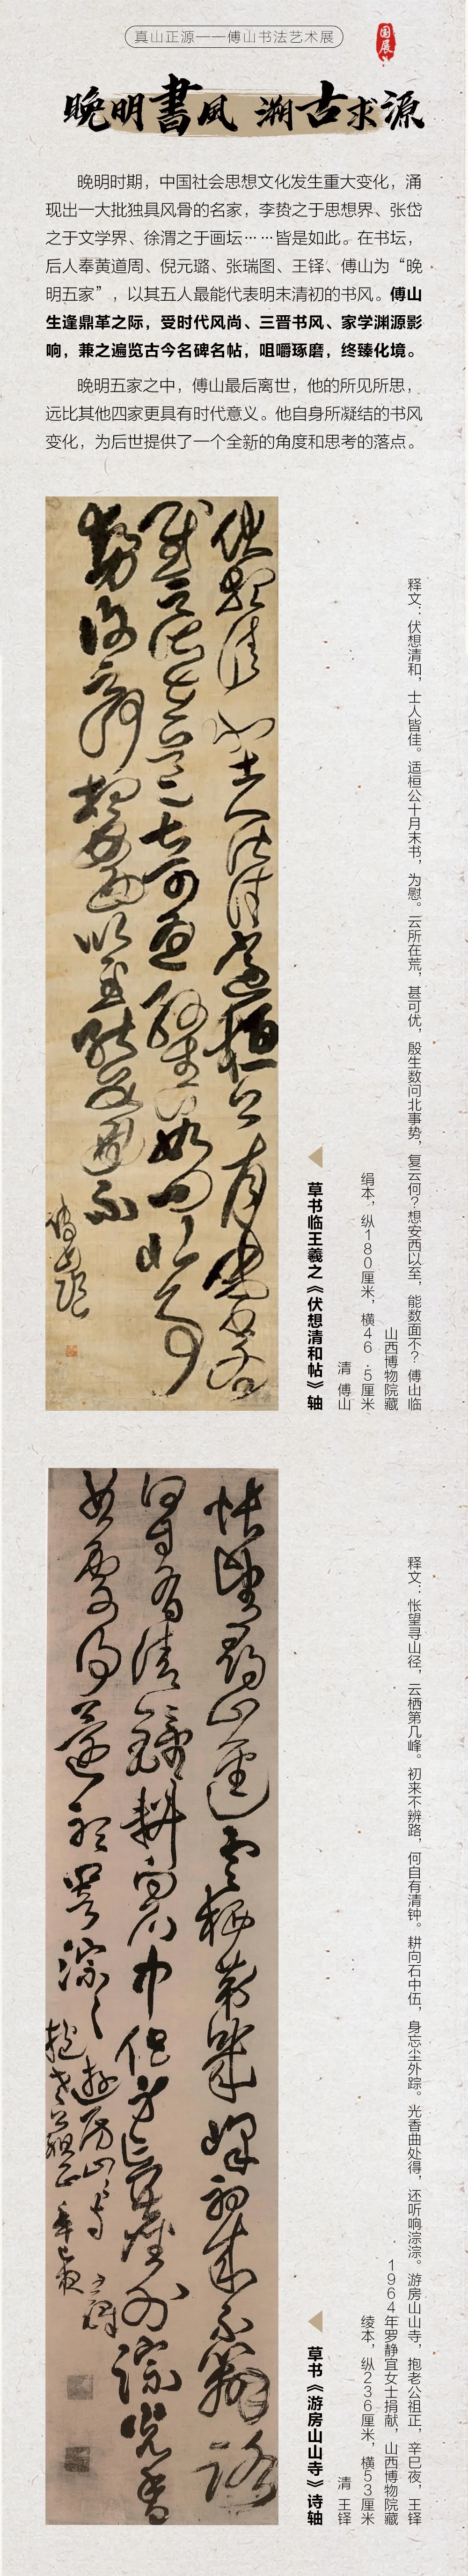 真山正源——傅山书法艺术展
国展
晚明書风 溯古求源
晚明时期，中国社会思想文化发生重大变化，涌
现出一大批独具风骨的名家，李贽之于思想界、张岱
之于文学界、徐渭之于画坛……皆是如此。在书坛，
后人奉黄道周、倪元璐、张瑞图、王铎、傅山为“晚
明五家”，以其五人最能代表明末清初的书风。傅山
生逢鼎革之际，受时代风尚、三晋书风、家学渊源影
响，兼之遍览古今名碑名帖，咀嚼琢磨，终臻化境。
晚明五家之中，傅山最后离世，他的所见所思，
远比其他四家更具有时代意义。他自身所凝结的书风
变化，为后世提供了一个全新的角度和思考的落点。
草书临王羲之《伏想清和帖》轴
清 傅山
绢本，纵180厘米，横46.5厘米
山西博物院藏
释文：伏想清和，士人皆佳。适桓公十月末书，为慰。云所在荒，甚可优，殷生数问北事势，复云何？想安西以至，能数面不？傅山临
草书《游房山山寺》诗轴
清 王铎
绫本，纵236厘米，横53厘米
1964年罗静宜女士捐献，山西博物院藏
释文：怅望寻山径，云栖第几峰。初来不辨路，何自有清钟。耕向石中伍，身忘尘外踪。光香曲处得，还听响淙淙。游房山山寺，抱老公祖正，辛巳夜，王铎